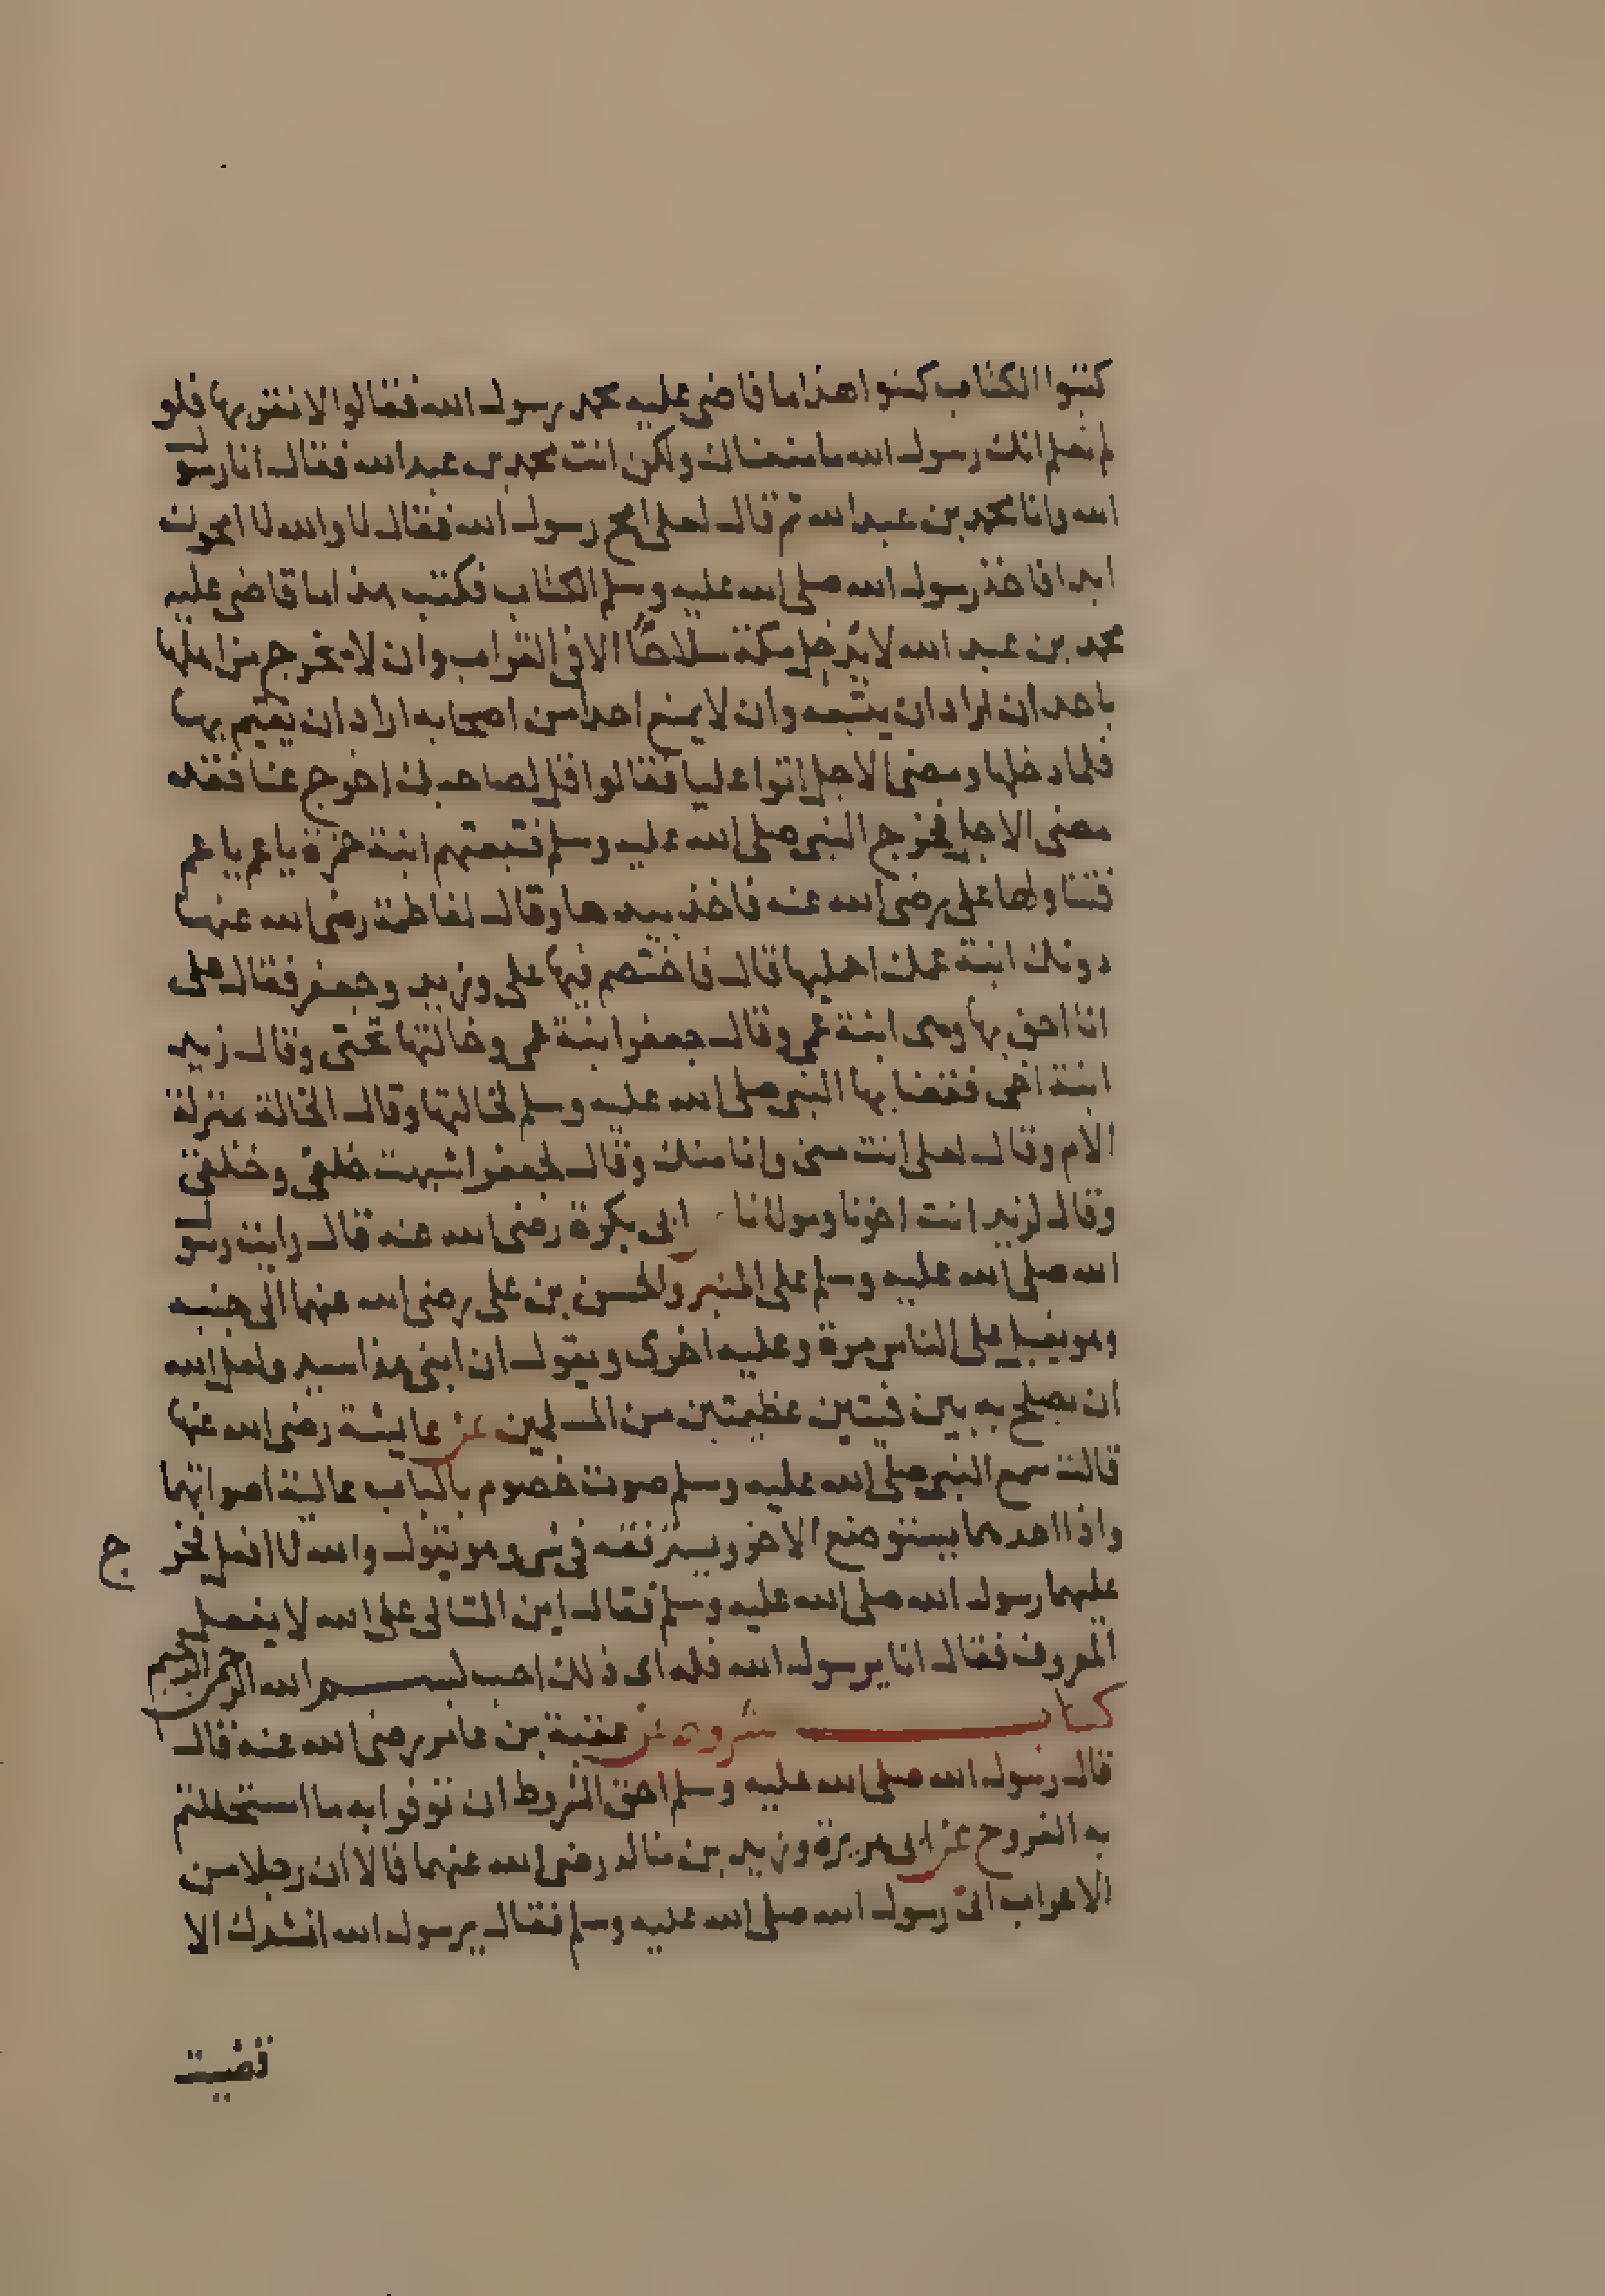 كتبوا الكتاب كتبوا هذا ما قاضى عليه محمد رسول الله فقالوا لا نقر بها فلو
لم نعلم انك رسول الله ما منعناك ولكن انت محمد بن عبد الله فقال انا رسول
الله وانا محمد بن عبد الله ثم قال لعلي امح رسول الله فقال لا والله لا امحوك
ابدا فاخذ رسول الله صلى الله عليه وسلم الكتاب فكتب هذا ما قاضى عليه
محمد بن عبد الله لا يدخل مكة سلاحا الا في القراب وان لا يخرج من اهلها
باحد ان اراد ان يتبعه وان لا يمنع احدا من اصحابه اراد ان يقيم بها
فلما دخلها ومضى الاجل اتوا عليا فقالوا قل لصاحبك اخرج عنا فقد
مضى الاجل فخرج النبي صلى الله عليه وسلم فتبعتهم ابنة حمزة يا عم يا عم
فتناولها علي رضى الله عنه فاخذ بيدها وقال لفاطمة رضى الله عنها
دونك ابنة عمك احمليها قال فاختصم فيها علي وزيد وجعفر فقال علي
انا احق بها وهي ابنة عمي وقال جعفر ابنة عمي وخالتها تحتي وقال زيد
ابنة اخي فقضا بها النبي صلى الله عليه وسلم لخالتها وقال الخالة بمنزلة
الام وقال لعلي انت مني وانا منك وقال لجعفر اشبهت خلقي وخلقي
وقال لزيد انت اخونا ومولانا ابي بكرة رضى الله عنه قال رايت رسول
الله صلى الله عليه وسلم على المنبر والحسن بن علي رضى الله عنهما الى جنبه
وهو يقبل على الناس مرة وعليه اخرى ويقول ان ابني هذا سيد ولعل الله
ان يصلح به بين فيتين عظيمتين من المسلمين عن عايشة رضى الله عنها
قالت سمع النبي صلى الله عليه وسلم صوت خصوم بالباب عالية اصواتهما
واذا احدهما يستوضع الاخر ويسترفقه في شي وهو يقول والله لا افعل فخرج
عليهما رسول الله صلى الله عليه وسلم فقال اين المتالي على الله لا يفعل
المعروف فقال انا يرسول الله فله اى ذلك احب بسم الله الرحمن الرحيم
كتاب شروط عن عقبة بن عامر رضى الله عنه قال
قال رسول الله صلى الله عليه وسلم احق الشروط ان توفوا به ما استحللتم
به الفروج عن ابى هريرة وزيد بن خالد رضى الله عنهما قالا ان رجلا من
الاعراب اتى رسول الله صلى الله عليه وسلم فقال يرسول الله انشدك الا
قضيت